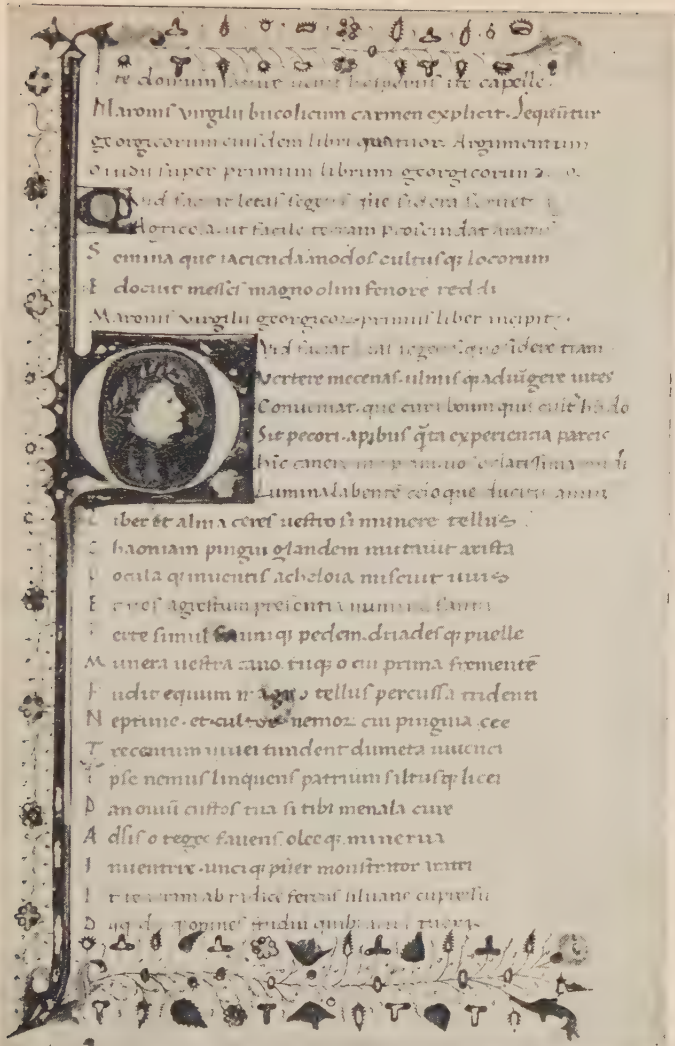 te domum sature uenit hesperus ite capelle.
Maronis virgilii bucolicum carmen explicit. Sequūtur
georgicorum eiusdem libri quatuor. Argumentum
ouidii super primum librum georgicorum
Quid faciat letas segetes que sidera seruet
Agricola ut facile terram proscindat aratris
Semina que iacienda modos cultusqꝫ locorum
Edocuit messes magno olim fenore reddi
Maronis virgilii georgicoꝝ primus liber incipit.
Quid faciat letas segetes quo sidere terram
Vertere mecenas. ulmisqꝫ adiūgere uites
Conueniat. que cura boum qui cult⁹ hñdo
Sit pecori. apibus q̄ta experiencia parcis
hic canere incipiam uos o clarissima mūdi
Lumina labentē celo que ducitis annū
Liber et alma ceres uestro si munere tellus
Chaoniam pingui glandem mutauit arista
Pocula qꝫ inuentis acheloia miscuit uuis
Et uos agrestum presentia numina fauni
Ferte simul fauniqꝫ pedem. driadesqꝫ puelle
Munera uestra cano. tuqꝫ o cui prima frementē
Fudit equum magno tellus percussa tridenti
Neptune. et cultor nemoꝝ cui pinguia cee
Trecentum niuei tundent dumeta iuuenci
Ipse nemus linquens patrium saltusqꝫ licei
Pan ouiū custos tua si tibi menala cure
Adsis o tegee fauens. oleeqꝫ. minerua
Inuentrix. unciqꝫ puer monstrator aratri
Et teneram ab radice ferens siluane cupressū